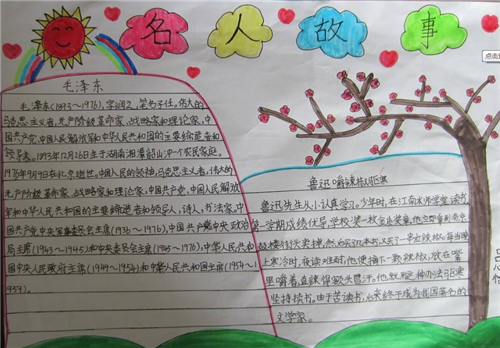 名人故事
毛泽东
毛泽东(1893~1976),字润之,笔名子任。伟大的
马克思主义者,无产阶级革命家、战略家和理论家,中
国共产党、中国人民解放军和中华人民共和国的主要缔造者和
领导者。1893年12月26日生于湖南湘潭韶山冲一个农民家庭。
1976年9月9日在北京逝世。中国人民的领袖,马克思主义者,伟大的
无产阶级革命家、战略家和理论家,中国共产党、中国人民解放
军和中华人民共和国的主要缔造者和领导人,诗人,书法家。中
国共产党中央政治
局主席(1943~1945)和中央委员会主席(1945~1976),中华人民共和
国中央人民政府主席(1949~1954)和中华人民共和国主席(1954~1
959)。
鲁迅嚼辣椒驱寒
鲁迅先生从小认真学习。少年时,在江南水师学堂读书,
第一学期成绩优异,学校奖
上寒冷时,夜读难耐,他便摘下一颗辣椒,放在嘴
里嚼着,直辣得额头冒汗。他就用这种办法驱寒
坚持读书。由于苦读书,后来终于成为我国著名的
文学家。